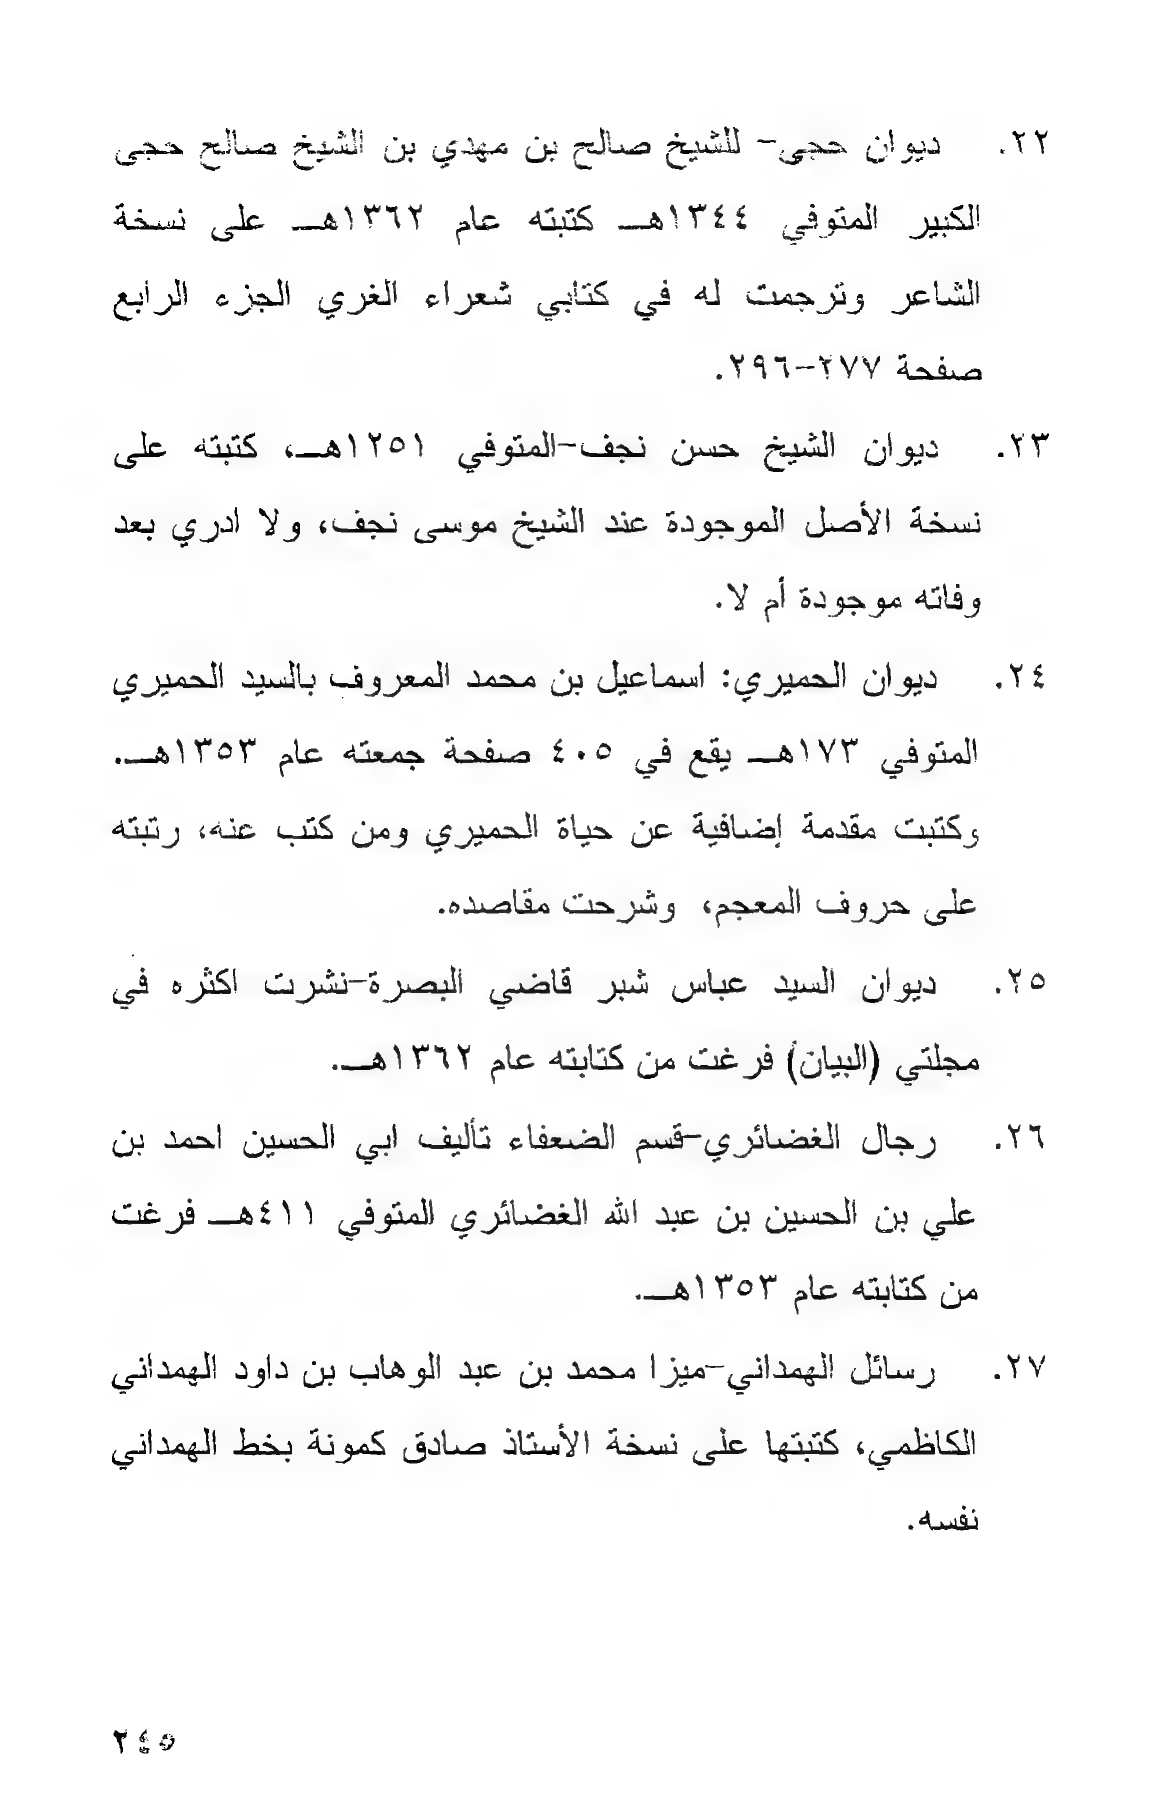 ٢٢. ديوان حجي- للشيخ صالح بن مهدي بن الشيخ صالح حجي
الكبير المتوفي ١٣٤٤هـ كتبته عام ١٣٦٢هـ على نسخة
الشاعر وترجمت له في كتابي شعراء الغري الجزء الرابع
صفحة ٢٧٧-٢٩٦.
٢٣. ديوان الشيخ حسن نجف-المتوفي ١٢٥١هـ، كتبته على
نسخة الأصل الموجودة عند الشيخ موسى نجف، ولا ادري بعد
وفاته موجودة أم لا.
٢٤. ديوان الحميري: اسماعيل بن محمد المعروف بالسيد الحميري
المتوفي ١٧٣هـ يقع في ٤٠٥ صفحة جمعته عام ١٣٥٣هـ.
وكتبت مقدمة إضافية عن حياة الحميري ومن كتب عنه، رتبته
على حروف المعجم، وشرحت مقاصده.
٢٥. ديوان السيد عباس شبر قاضي البصرة-نشرت اكثره في
مجلتي (البيان) فرغت من كتابته عام ١٣٦٢هـ.
٢٦. رجال الغضائري-قسم الضعفاء تأليف ابي الحسين احمد بن
علي بن الحسين بن عبد الله الغضائري المتوفي ٤١١هـ فرغت
من كتابته عام ١٣٥٣هـ.
٢٧. رسائل الهمداني-ميزا محمد بن عبد الوهاب بن داود الهمداني
الكاظمي، كتبتها على نسخة الأستاذ صادق كمونة بخط الهمداني
نفسه.
٢٤٥